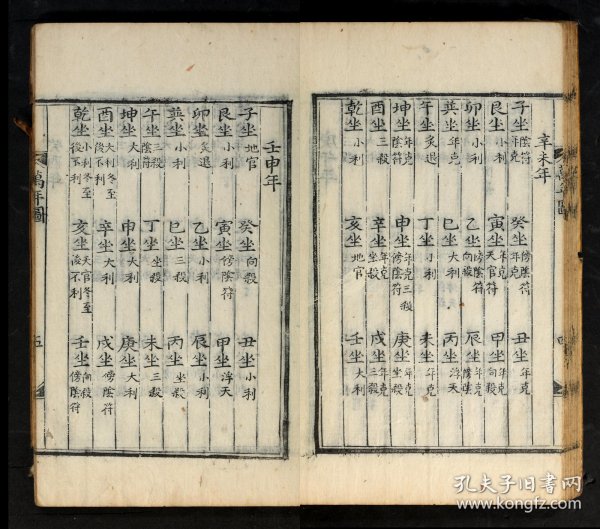 辛未年
子坐 陰符年克 癸坐 傍陰符年克 丑坐 年克
艮坐 小利 寅坐 年克天官符 甲坐 年克向殺
卯坐 小利 乙坐 傍陰符向殺 辰坐 年克傍陰符
巽坐 年克 巳坐 大利 丙坐 浮天
午坐 炙退 丁坐 小利 未坐 小利
坤坐 年克陰符 申坐 年克三殺傍陰符 庚坐 年克坐殺
酉坐 三殺 辛坐 年克坐殺 戌坐 年克三殺
乾坐 小利 亥坐 地官 壬坐 大利
壬申年
子坐 地官 癸坐 向殺 丑坐 小利
艮坐 小利 寅坐 傍陰符 甲坐 浮天
卯坐 炙退 乙坐 小利 辰坐 小利
巽坐 小利 巳坐 三殺 丙坐 坐殺
午坐 三殺陰符 丁坐 坐殺 未坐 三殺
坤坐 大利 申坐 大利 庚坐 大利
酉坐 大利冬至後不利 辛坐 大利 戌坐 傍陰符
乾坐 小利冬至後不利 亥坐 天官冬至後不利 壬坐 向殺傍陰符
萬年圖 五
孔夫子旧书网
www.kongfz.com